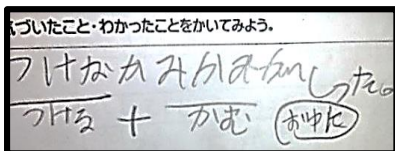 づいたこと・わかったことをかいてみよう。
つけなか かみ しった。
つける + かむ おゆに